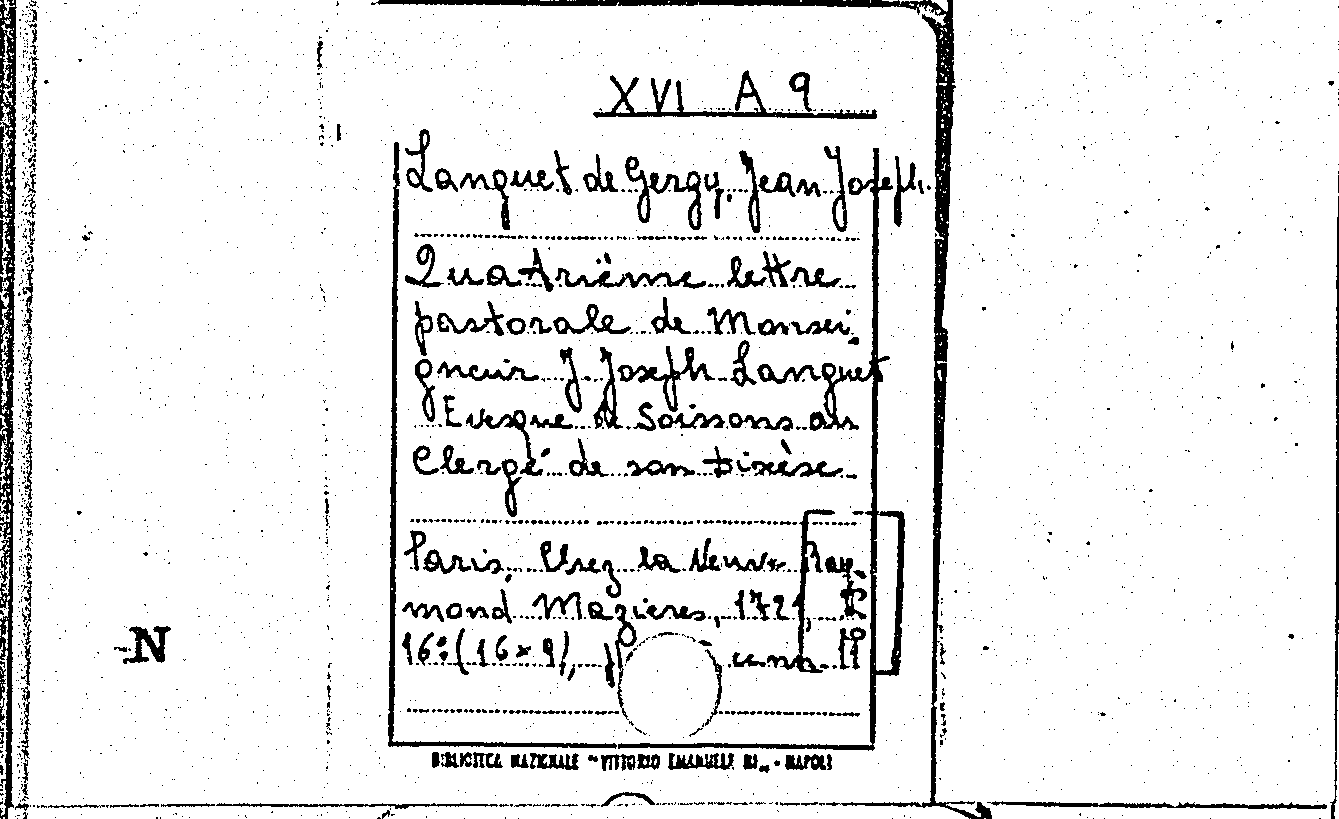 XVI A 9
Languet de Gergy, Jean Joseph.
Quatrième lettre
pastorale de Monsei
gneur J. Joseph Languet
Evesque de Soissons au
Clergé de son Diocèse
Paris, Chez la Veuve Ray
mond Mazieres, 1721,
16º (16x9),
N
BIBLIOTECA NAZIONALE "VITTORIO EMANUELE III" - NAPOLI